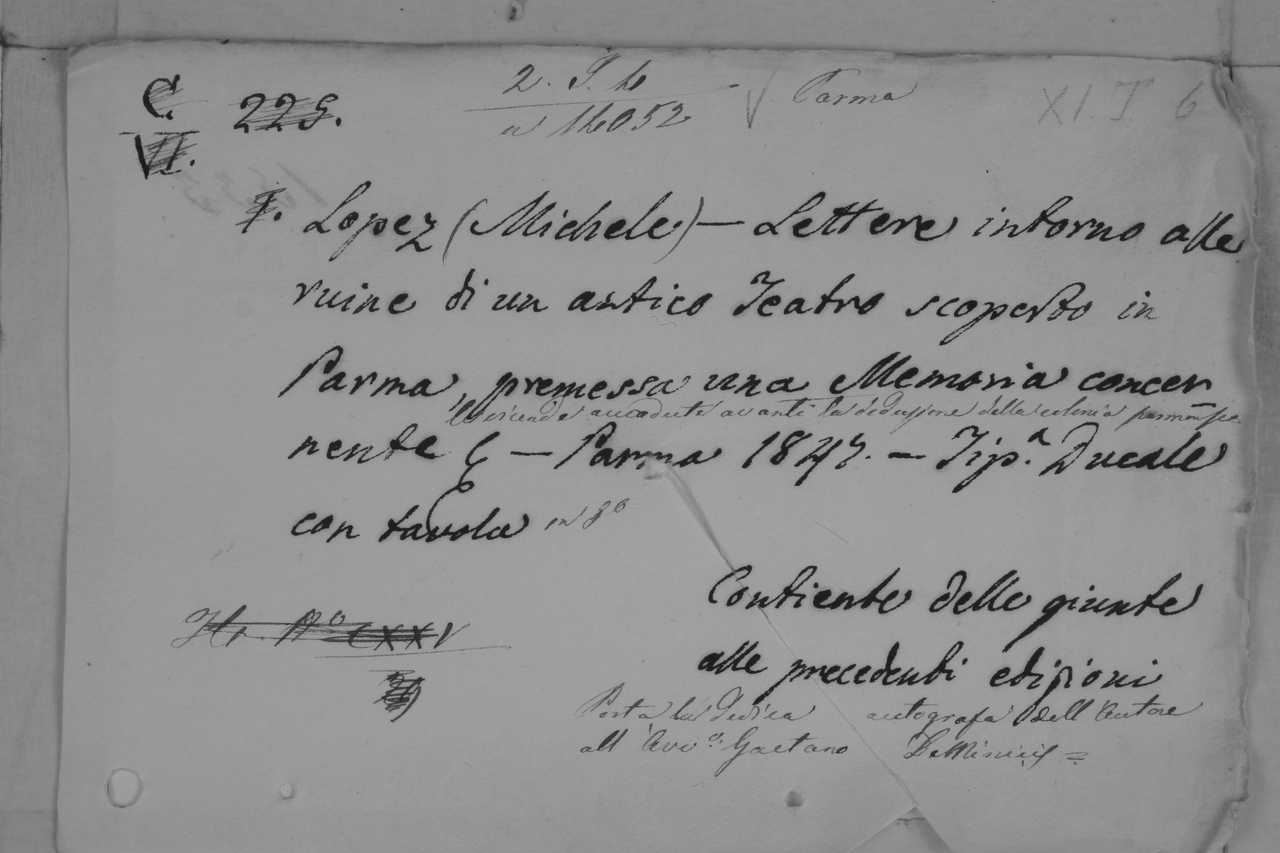 C. 225. 2. I. 4 - √ Parma XI. I. 6
VI. a 14052
I. Lopez (Michele) – Lettere intorno alle
ruine di un antico Teatro scoperto in
Parma, premessa una Memoria concer
le vicende accadute avanti la deduzione della colonia
nente &c – Parma 1847. – Tip.ª Ducale
con tavola in 8º
Contiente delle giunte
alle precedenti edizioni
Nº CXXV
Porta la dedica autografa dell'Autore
all'Avvº. Gaetano DeMinicis =